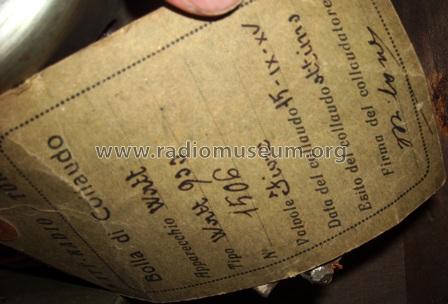 WATT RADIO TO
Bolla di Collaudo
Apparecchio Watt
Tipo Watt
N° 1506
Valvole Fivre
Data del collaudo 15-IX-XV
Esito del collaudo ottimo
Firma del collaudatore
www.radiomuseum.org